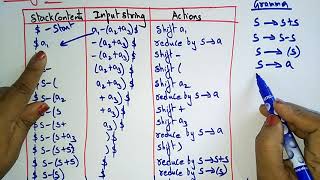 Stack Content Input string Actions
$ - Start a₁-(a₂+a₃)$ shift a₁
$ a₁ -(a₂+a₃)$ reduce by S→a
-(a₂+a₃)$ shift -
(a₂+a₃)$ shift (
$ S-( a₂+a₃)$ shift a₂
$ S-(a₂ +a₃)$ reduce by S→a
$ S-(S +a₃)$ shift +
$ S-(S+ a₃)$ shift a₃
$ S-(S+a₃ )$ reduce by S→a
$ S-(S+S )$ shift )
$ S-(S+S) $ reduce by S→S+S
$ S-(S) $ reduce by S→(S)
S→S+S
S→S-S
S→(S)
S→a